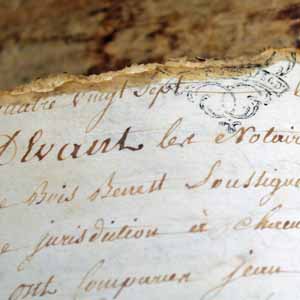 quatre vingt sept
Devant les Notair
Bois Benest Soussigne
jurisdiction a
ont comparu jean